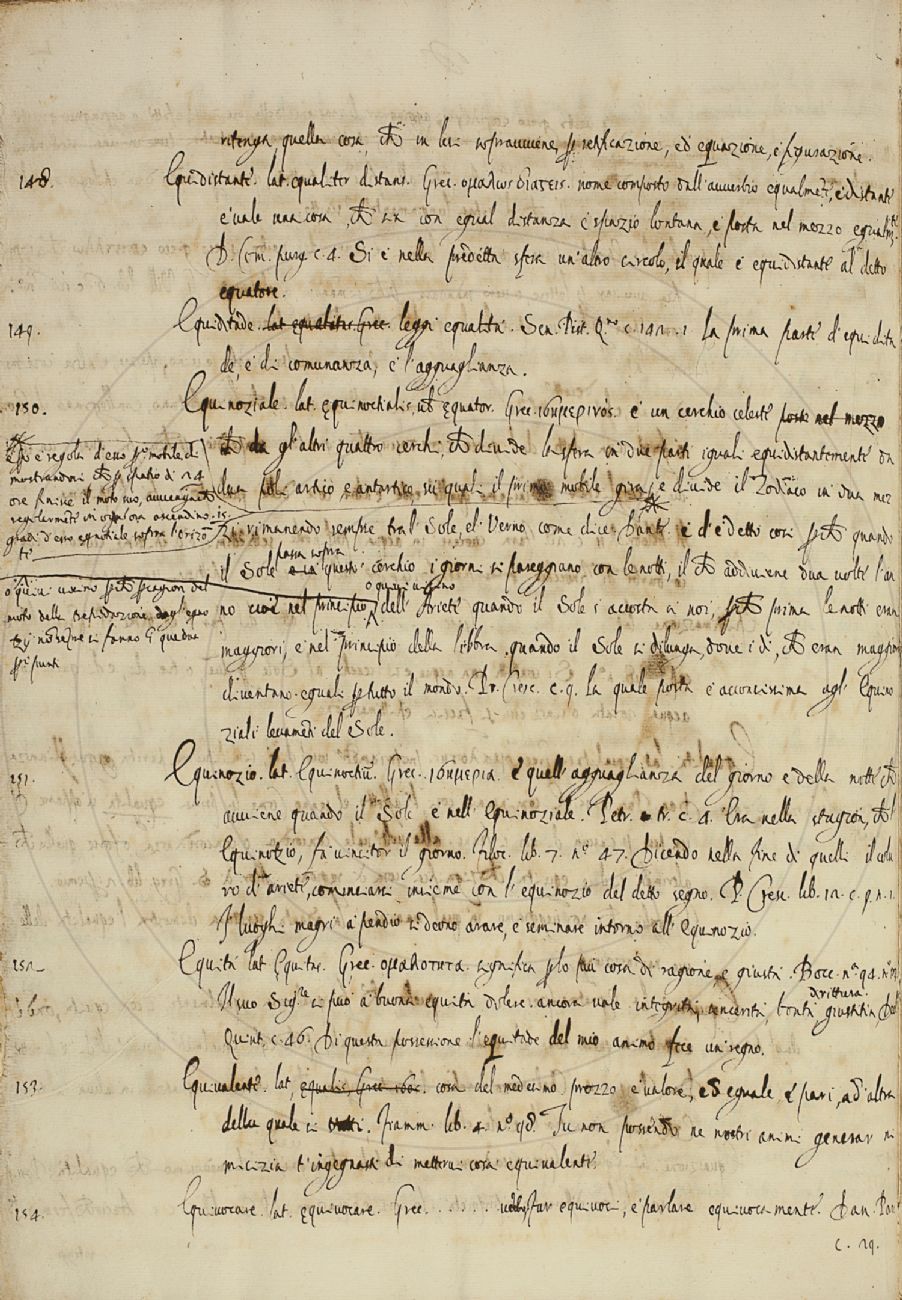 ritenga quella cosa, che in lui sopravviene, per retificazione, ed equazione, e figurazione.
148. Equidistante. lat. equaliter distans. Grec. ομαλως διατεις. nome composto dall'avverbio equalmẽte, e distante
e vale una cosa, che sia con egual distanza e spazio lontana, e posta nel mezzo equalmẽte
D. Com. purg. c. 4. Si è nella predetta spera un'altro circolo, il quale è equidistante al detto
equatore.
149. Equiditade. lat equalitas. Grec. leggi equalità. Sen. Pist. c. 142. 1 La prima parte d'equidita
de, è di comunanza, e l'agguaglianza.
150. Equinoziale. lat. equinoctialis, vel equator. Grec. ισημερινὸς. è un cerchio celeste posto nel mezzo
che da gl'altri quattro cerchi, che divide la spera in due parti iguali equidistantemente da
dua poli artico, e antartico, su quali il primo mobile gira, e divide il Zodiaco in dua mez
zi rimanendo sempre tra'l Sole, e'l Verno, come dice Dante e d'è detto così perchè quando
passa sopra
il Sole questo cerchio i giorni si pareggiano con le notti, il che adduviene dua volte l'an
o quivi vicino
no cioè nel principio dell'Ariete quando il Sole s'accosta a noi, perchè prima le notti eran
maggiori, e nel principio della libbra, quando il Sole si dilunga, dove i dì, che eran maggiori
diventano eguali per tutto il mondo. Pr. Cresc. c. 9. La quale porta è acconcissima agl'Equino
ziali levamẽti del Sole.
e più è regola d'esso pº mobile di
mostrandoci che per spatio di 24
ore finisce il moto suo, avvengache
regolarmẽte in ogn'ora ascendino. 15.
gradi d'esso equinotiale sopra l'orizo
te
o quivi vicino perchè per cagion del
moto della trepidazione degl'equo
zij nõ sẽpre si fanno ĩ que dua
pⁱ punti
151. Equinozio. lat. Equinoctiũ. Grec. ισημερια. è quell'agguaglianza del giorno e della notte che
avviene quando il Sole è nell'Equinoziale. Petr. tr. c. 4. Era nella stagion, che
l'equinotzio, fa vincitor il giorno. Filoc. lib. 7. nº 47. Dicendo nella fine di quelli il colu
ro d'ariete, cominciarsi insieme con l'equinozio del detto segno. P Cresc. lib. 12. c. 9. n. 1.
I luoghi magri a pendio si deono arare, e seminare intorno all'Equinozio.
152 Equità lat Equitas. Grec. ομαλοτητα. significa per lo più cosa di ragione, e giusta. Bocc. nº 94.
dirittura.
Il suo Sigre si può a buona equità dolere. ancora vale integrità, sincerità, bontà, giustitia
Quint. c. 46. Di questa possessione l'equitade del mio animo fece un regno.
153 Equivalente. lat, equalis, Grec. ισος. cosa del medesimo prezzo e valore, ed eguale, e pari, ad altra
della quale si tratti. Fiamm. lib. 4. nº 98. Tu non possendo ne nostri animi generar ni
micizia t'ingegnasti di metterui cosa equivalente.
154. Equivocare. lat. equivocare. Grec. . . . . . . usar equivoci, e parlare equivocamente. Dan. Par
c. 29.